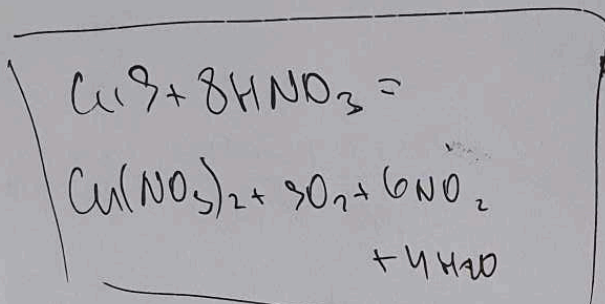 CuS + 8HNO₃ =
Cu(NO₃)₂ + SO₂ + 6NO₂
+ 4H₂O